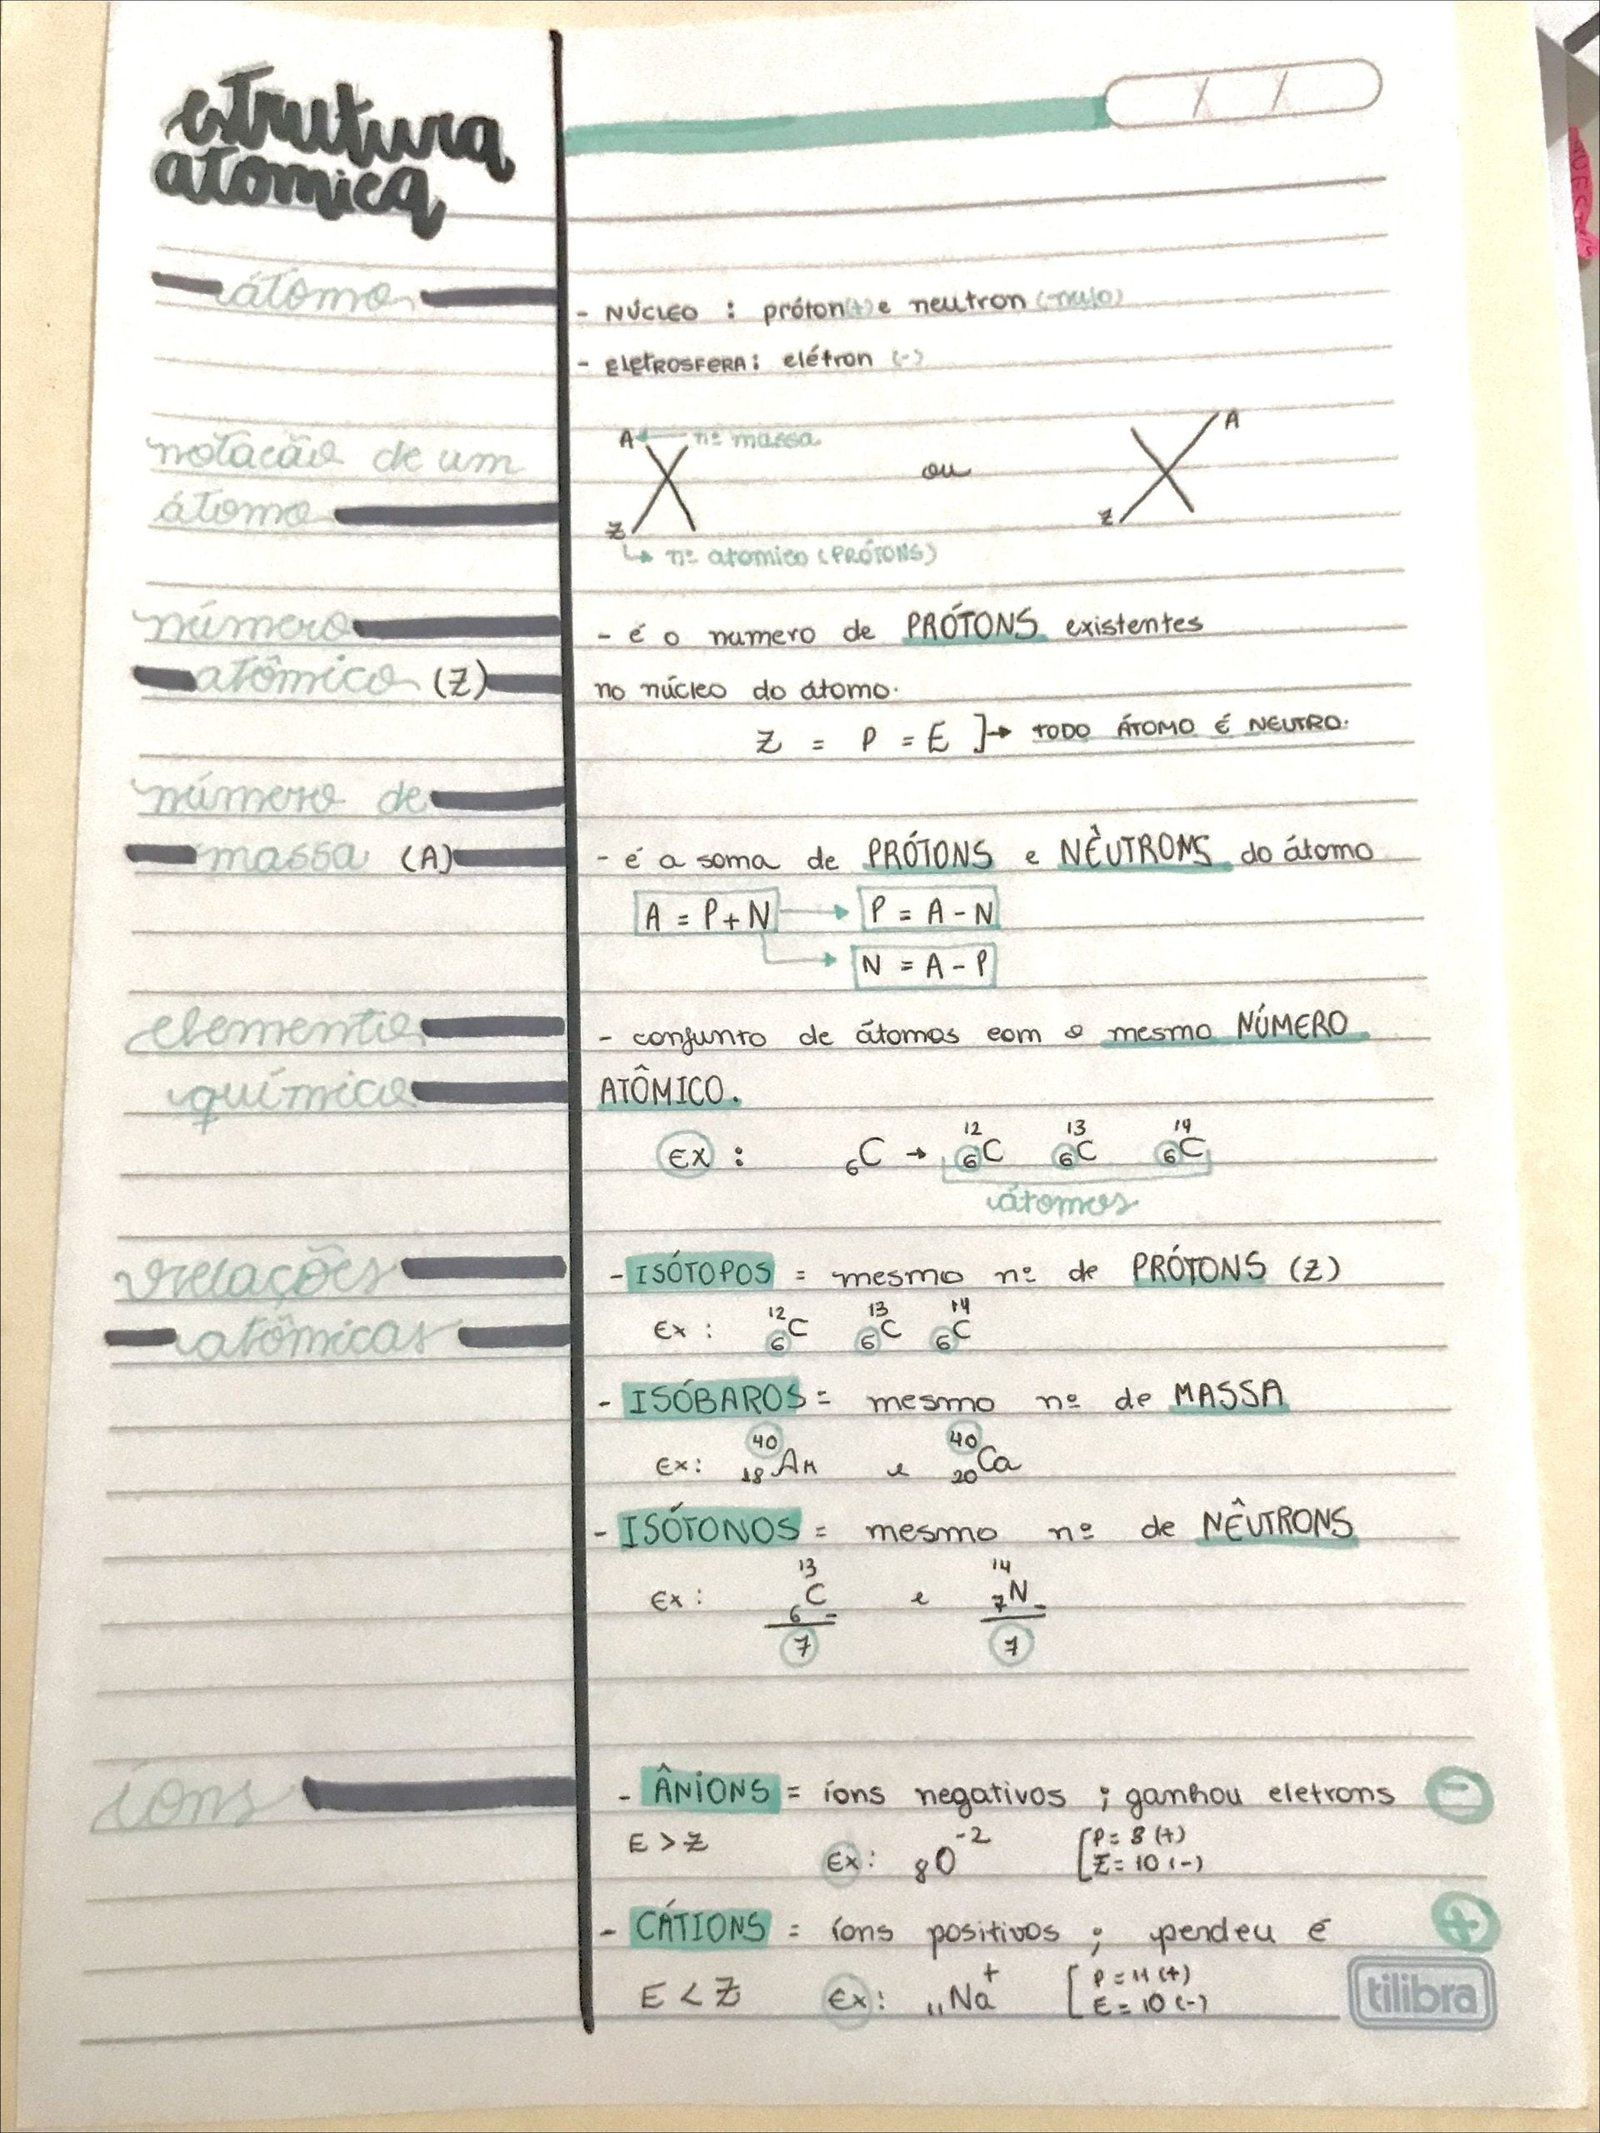 estrutura
atomica
átomo
- NÚCLEO : próton(+) e neutron (-nulo)
- ELETROSFERA: elétron (-)
notação de um
átomo
A ← nº massa
X ou X A
Z Z
↳ nº atomico (PRÓTONS)
número
atômico (Z)
- é o numero de PRÓTONS existentes
no núcleo do átomo.
Z = P = E ]→ TODO ÁTOMO É NEUTRO.
número de
massa (A)
- é a soma de PRÓTONS e NÊUTRONS do átomo
A = P + N → P = A - N
→ N = A - P
elemento
químico
- conjunto de átomos com o mesmo NÚMERO
ATÔMICO.
EX : ₆C → ¹²₆C ¹³₆C ¹⁴₆C
átomos
relações
atômicas
- ISÓTOPOS = mesmo nº de PRÓTONS (Z)
Ex : ¹²₆C ¹³₆C ¹⁴₆C
- ISÓBAROS = mesmo nº de MASSA
Ex: ⁴⁰₁₈Ar e ⁴⁰₂₀Ca
- ISÓTONOS = mesmo nº de NÊUTRONS
Ex : ¹³₆C - e ¹⁴₇N -
7 7
íons
- ÂNIONS = íons negativos ; ganhou eletrons -
E > Z Ex: ₈O⁻² [P = 8 (+)
E = 10 (-)
- CÁTIONS = íons positivos ; perdeu é +
E < Z Ex: ₁₁Na⁺ [P = 11 (+)
E = 10 (-)
tilibra